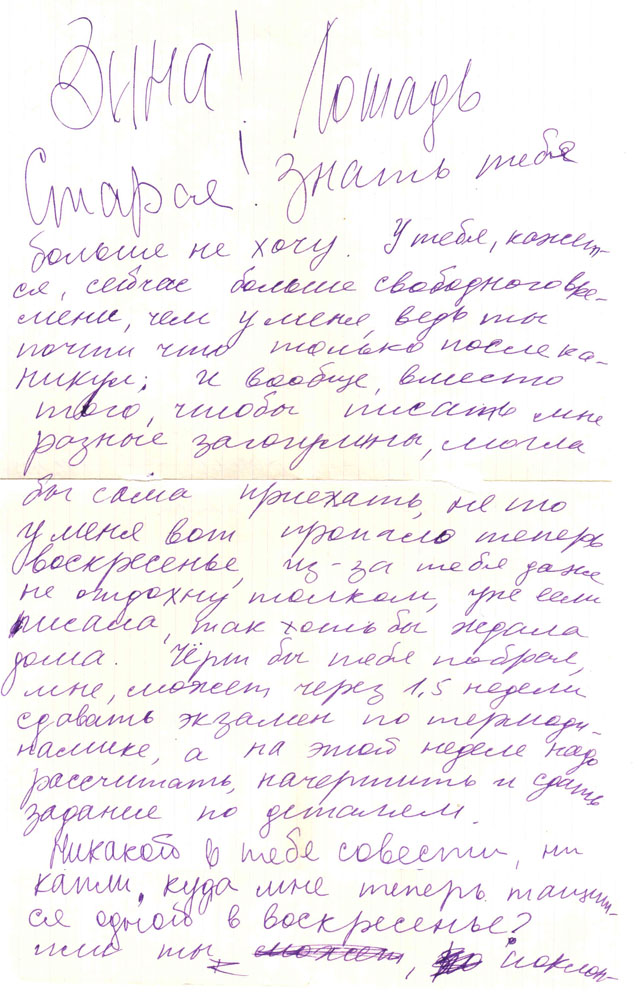 Зина! Лошадь
Старая! Знать тебя
больше не хочу. У тебя, кажет-
ся, сейчас больше свободного вре-
мени, чем у меня, ведь ты
почти что только после ка-
никул; и вообще, вместо
того, чтобы писать мне
разные загогулины, могла
бы сама приехать, не то
у меня вот пропало теперь
воскресенье, из-за тебя даже
не отдохну толком, уже если
писала, так хоть бы ждала
дома. Чёрт бы тебя побрал,
мне, может через 1,5 недели
сдавать экзамен по термоди-
намике, а на этой неделе надо
рассчитать, начертить и сдать
задание по деталям.
Никакой в тебе совести, ни
капли, куда мне теперь тащит-
ся одной в воскресенье?
ты